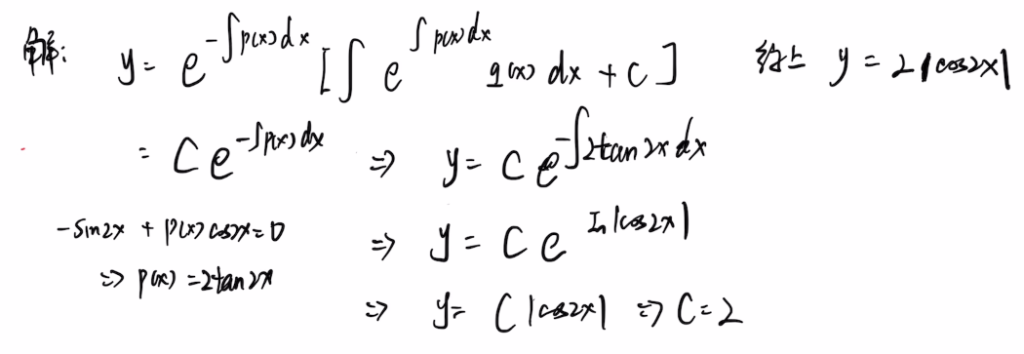 解: y = e^{-∫p(x)dx} [∫ e^{∫p(x)dx} q(x) dx + C] 综上 y = 2|cos2x|
= C e^{-∫p(x)dx} ⇒ y = C e^{-∫2tan2xdx}
-sin2x + p(x) cos2x = 0 ⇒ y = C e^{ln|cos2x|}
⇒ p(x) = 2tan2x
⇒ y = C|cos2x| ⇒ C = 2